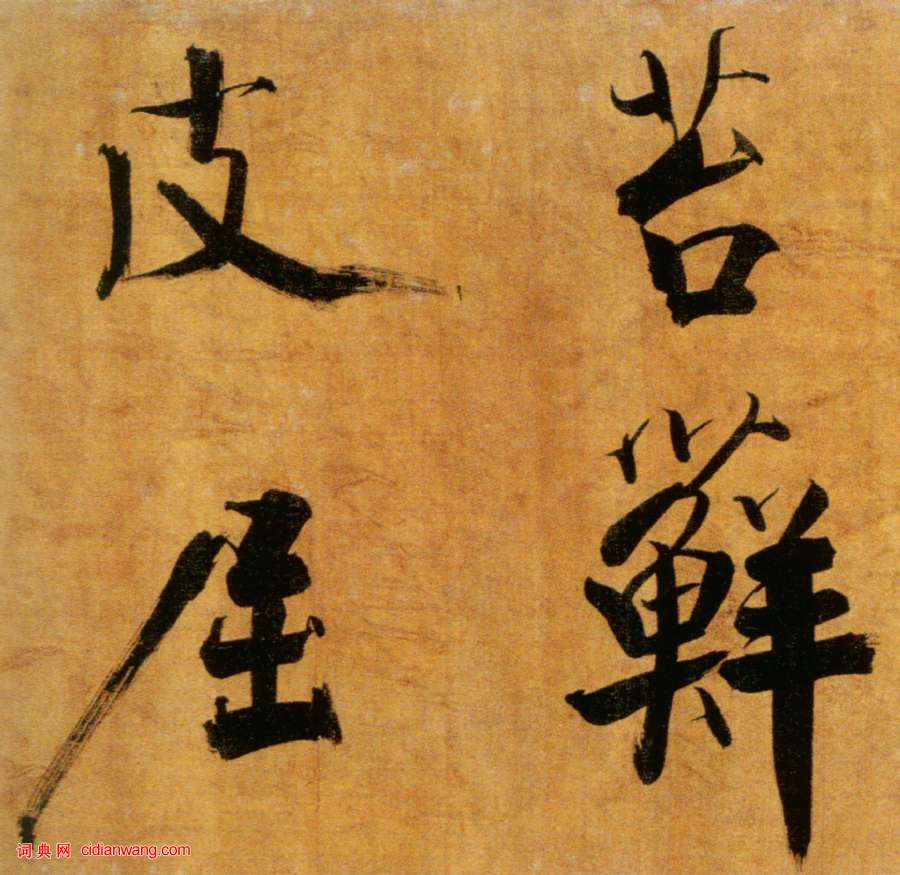 苔蘚
皮屈
词典网 cidianwang.com